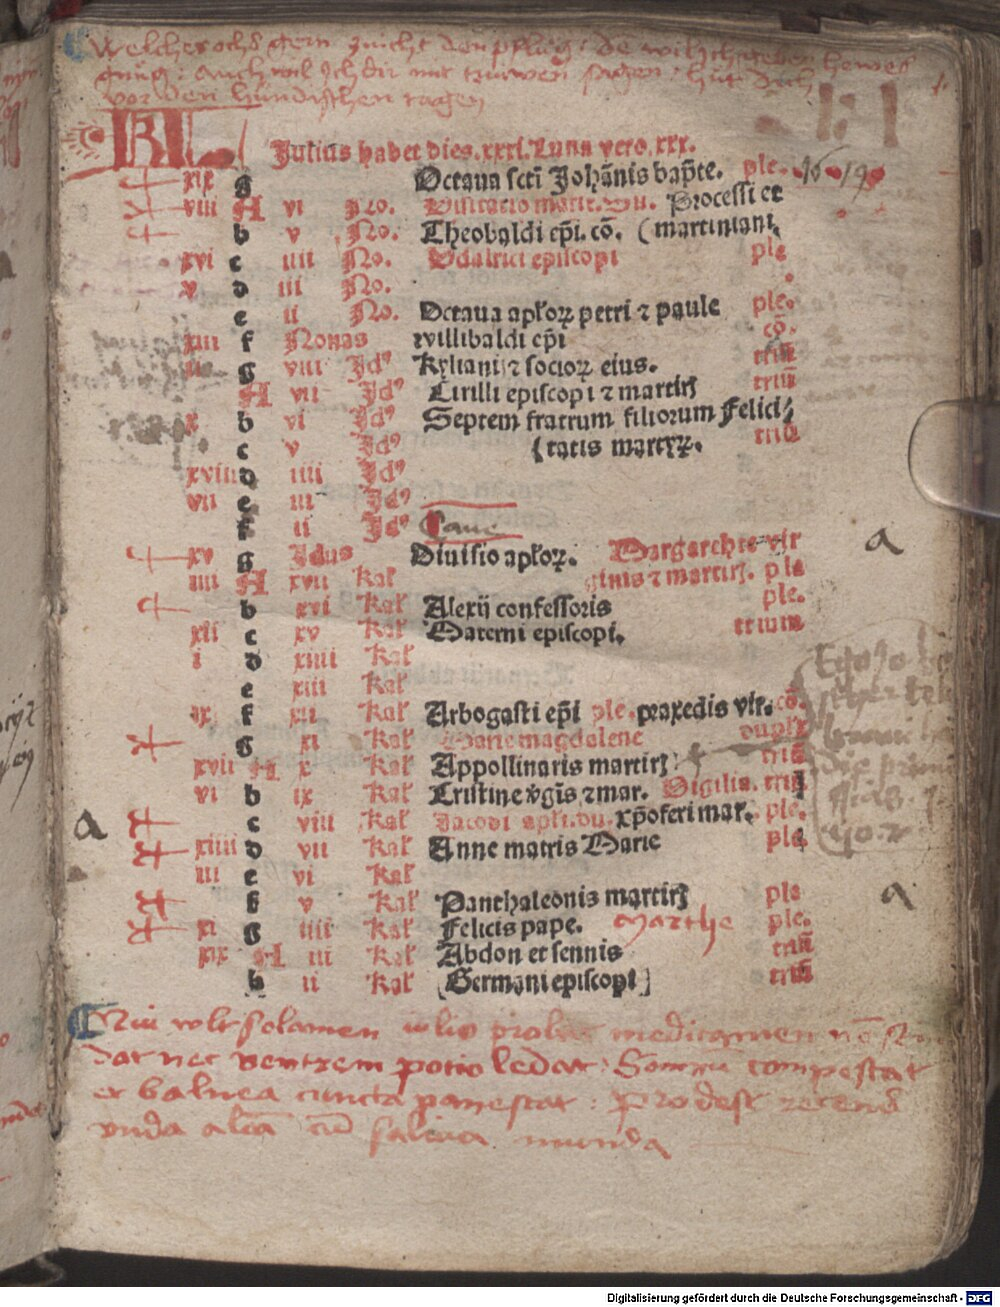 Welcher ochs gern zuicht den pflug : de wil ich geben hewes
gnug : auch wil ich dir mit truwen sagen : hut dich
vor den hundischen tagen
KL Julius habet dies .xxxi. Luna vero .xxx.
xix g Octaua scti Johānis bapte. ple. 1619
viii A vi No. Visitatio marie. du. Processi et
b v No. Theobaldi epi. cō. ( martiniani.
xvi c iiii No. Udalrici episcopi ple
v d iii No.
e ii No. Octaua aploꝝ petri ⁊ paule ple.
xiii f Nonas willibaldi epi cō.
ii g viii Jdꝰ Kyliani ⁊ socioꝝ eius. triū
A vii Jdꝰ Cirilli episcopi ⁊ martiris triū
x b vi Jdꝰ Septem fratrum filiorum Felici⸗
c v Jdꝰ ( tatis martyꝝ. triū
xviii d iiii Jdꝰ
vii e iii Jdꝰ
f ii Jdꝰ Cane
xv g Jdus Diuisio aploꝝ. Margarethe vir
iiii A xvii Kal ginis ⁊ martiris. ple
b xvi Kal Alexij confessoris ple.
xii c xv Kal Materni episcopi. trium
i d xiiii Kal
e xiii Kal
ix f xii Kal Arbogasti epi ple. praxedis vir. cō.
g xi Kal Marie magdalene duplx
xvii A x Kal Appollinaris martiris triū
vi b ix Kal Cristine vgis ⁊ mar. Vigilia. triū
c viii Kal Jacobi apli. du. xpoferi mar. ple.
a
xiiii d vii Kal Anne matris Marie ple
iii e vi Kal
f v Kal Panthaleonis martiris ple
a
xi g iiii Kal Felicis pape. Marthe ple.
xix A iii Kal Abdon et sennis triū
b ii Kal (Germani episcopi) triū
a
Qui vult solamen iulio probat medicamen nec
dat nec ventrem potio ledat : Somnū compescat
et balnea cuncta pauescat : prodest recens
vnda alea cū saluia munda
Digitalisierung gefördert durch die Deutsche Forschungsgemeinschaft - DFG